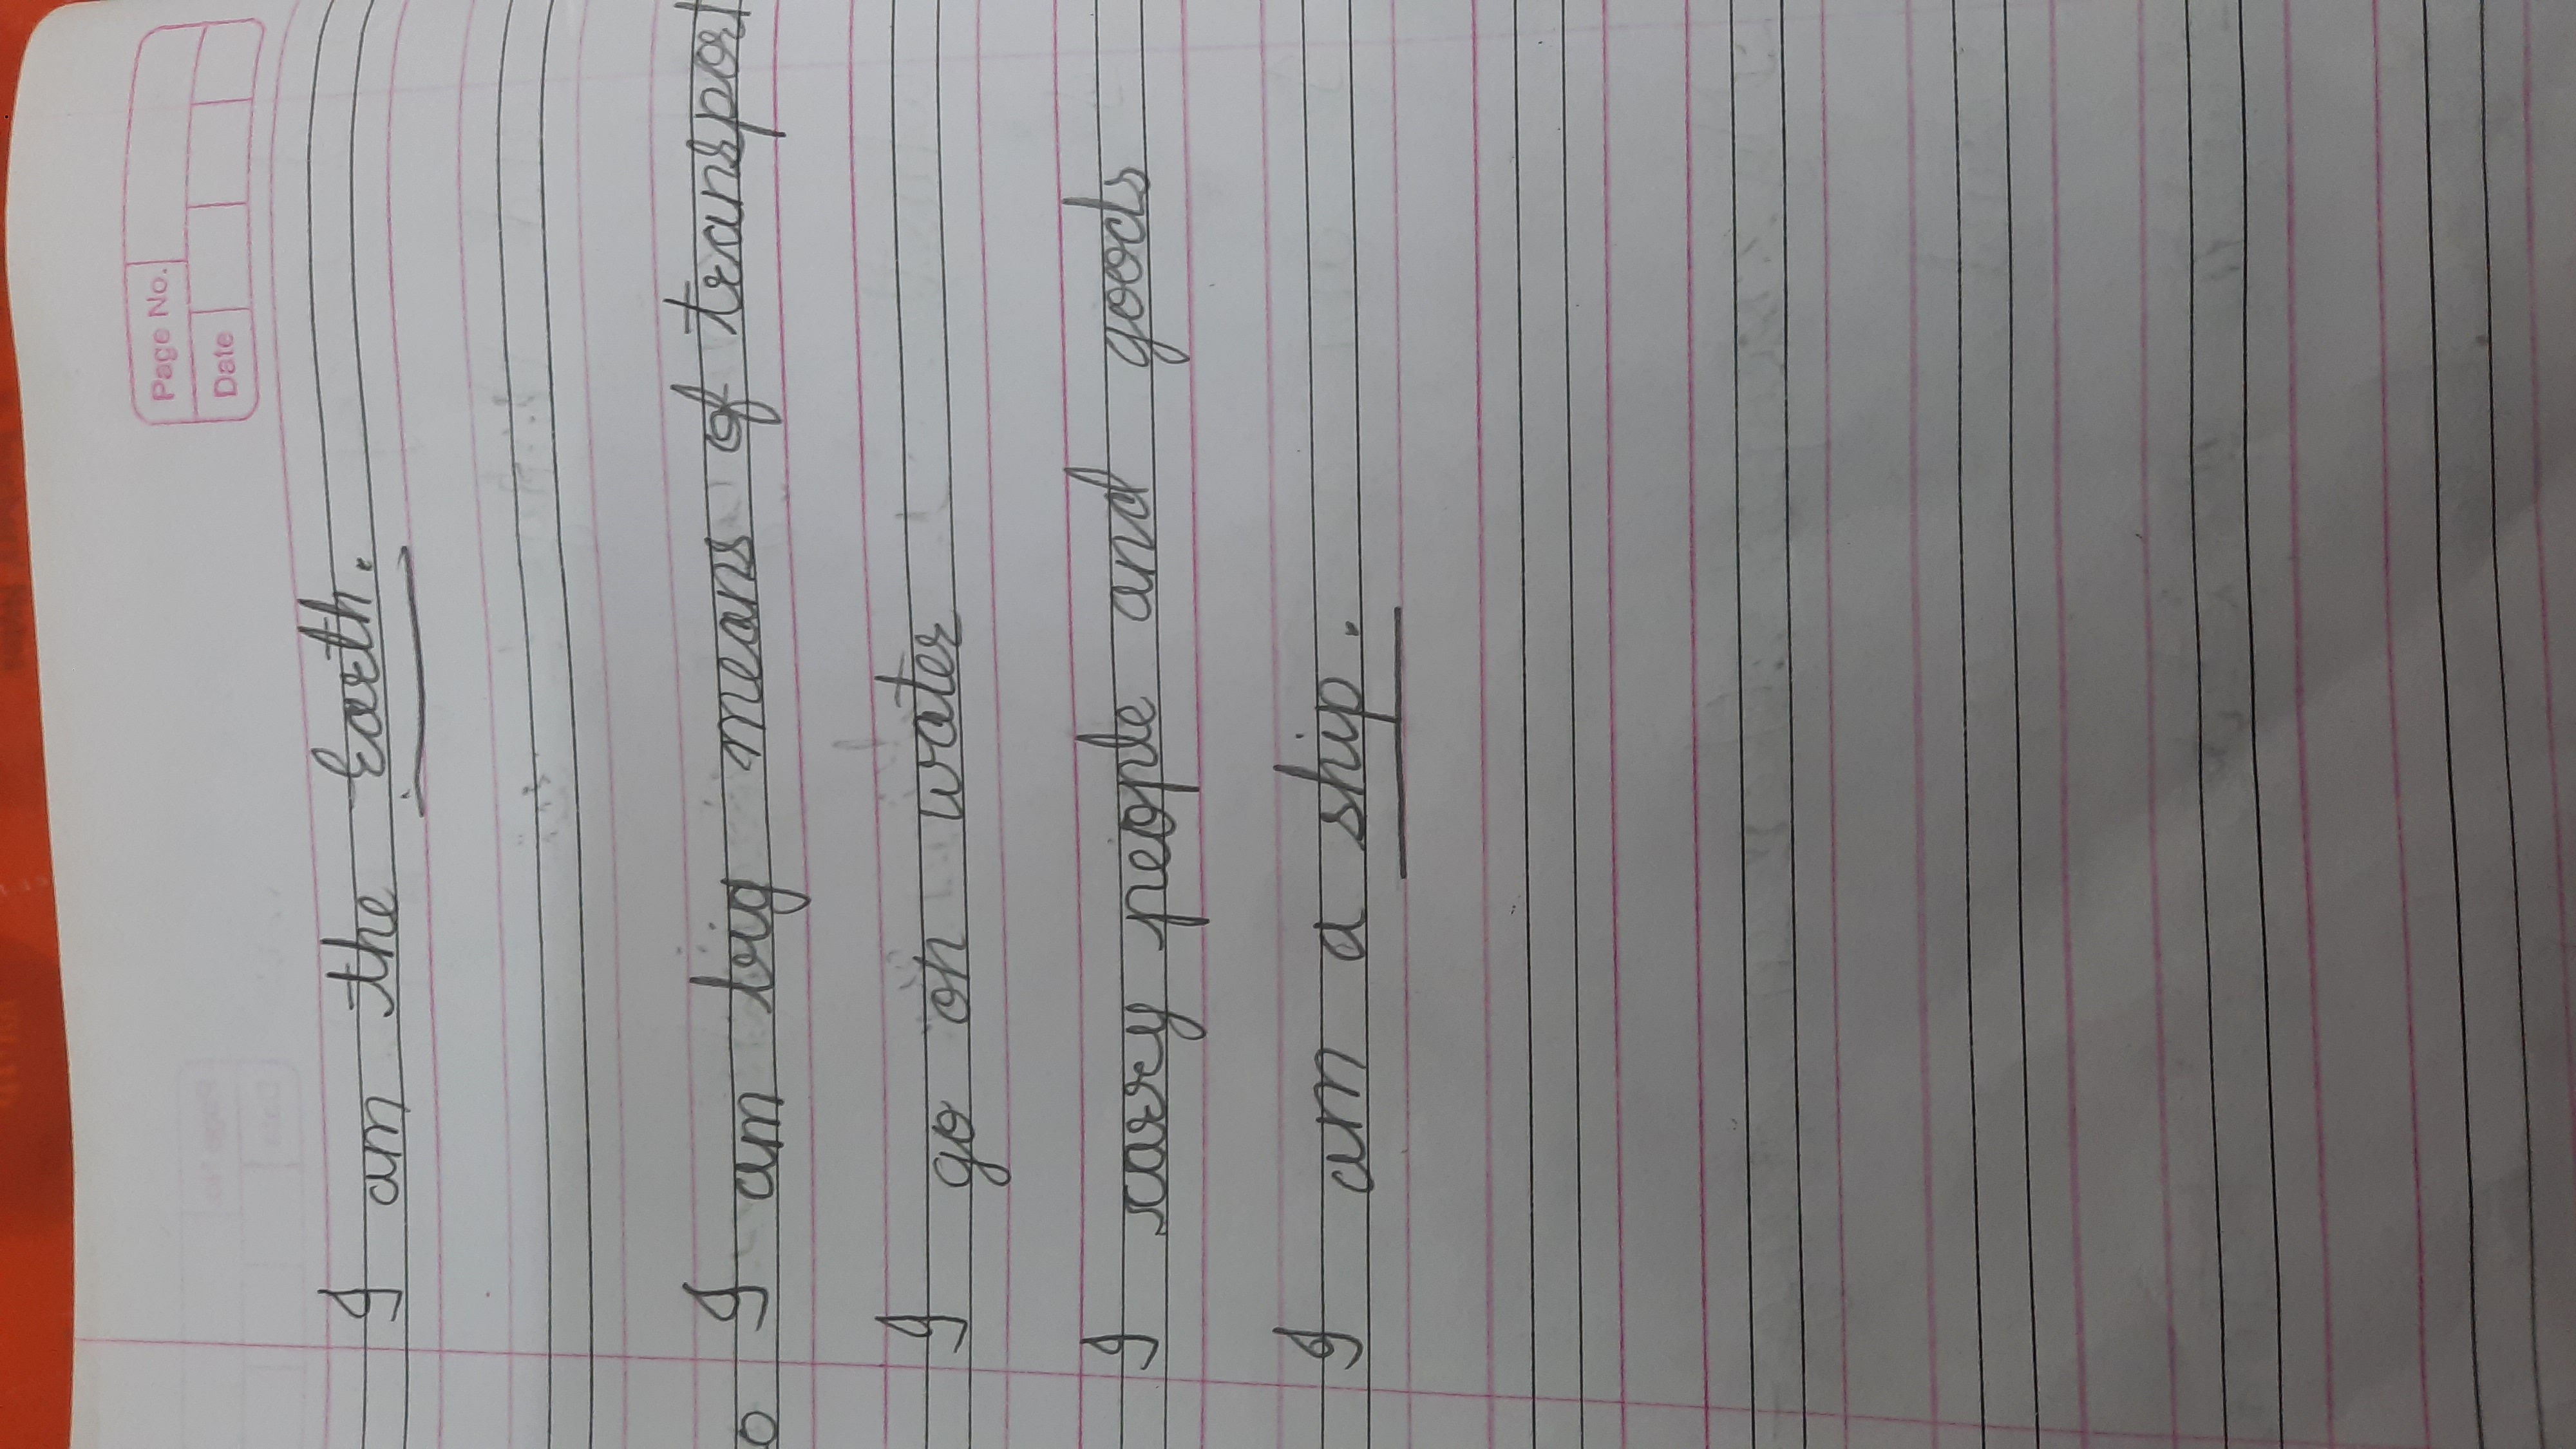 Page No.
Date
I am the Earth.
I am doig means of transport
I go on water
I carry people and goods
I am a ship.